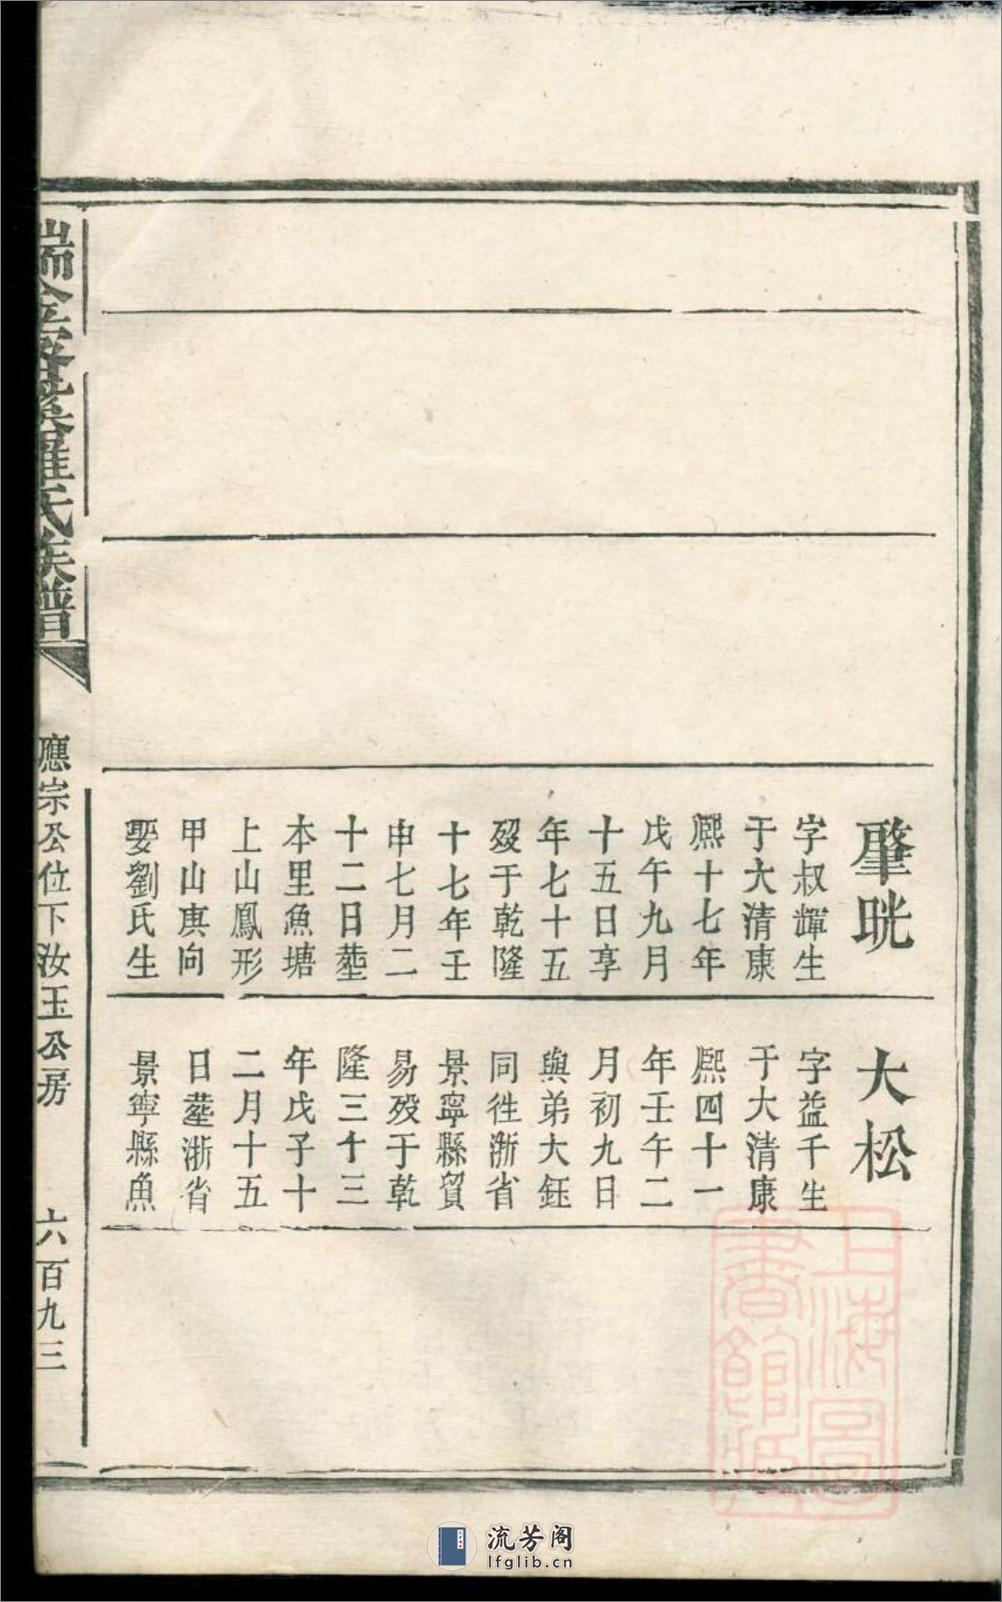 肇晄
字叔輝生
于大清康
熙十七年
戊午九月
十五日享
年七十五
歿于乾隆
十七年壬
申七月二
十二日塟
本里魚塘
上山鳳形
甲山庚向
娶劉氏生
大松
字益千生
于大清康
熙四十一
年壬午二
月初九日
與弟大鈺
同徃浙省
景寧縣貿
易歿于乾
隆三十三
年戊子十
二月十五
日塟浙省
景寧縣魚
羅氏族譜
應宗公位下汝玉公房
六百九三
上海圖
書館藏
流芳阁
lfglib.cn